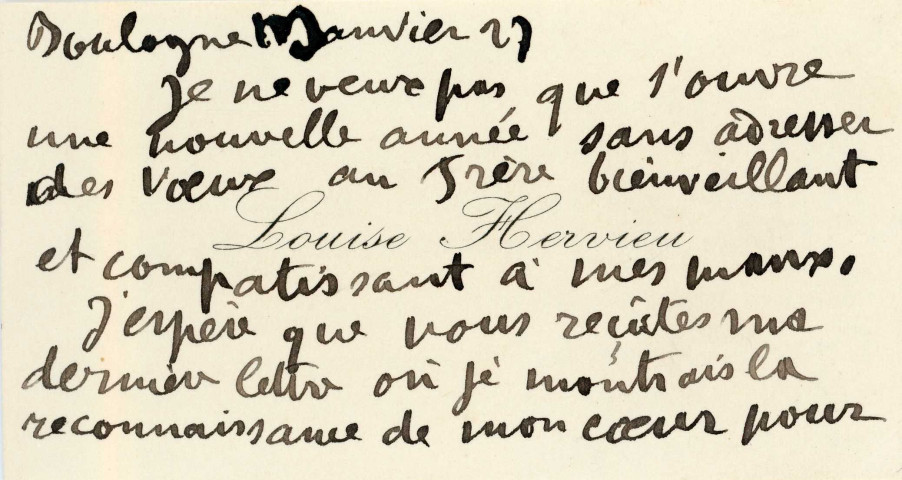 Boulogne Janvier 27
Je ne veux pas que s'ouvre
une nouvelle année sans adresser
des vœux au Frère bienveillant
Louise Hervieu
et compatissant à mes maux.
J'espère que vous reçûtes ma
dernière lettre où je montrais la
reconnaissance de mon cœur pour